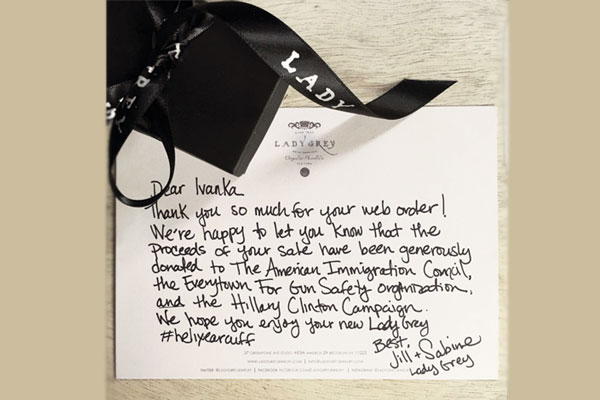 LADY
LADY GREY
Dear Ivanka
Thank you so much for your web order!
We're happy to let you know that the
proceeds of your sale have been generously
donated to The American Immigration Council,
the Everytown For Gun Safety organization,
and the Hillary Clinton Campaign.
We hope you enjoy your new Lady Grey
#helixearcuff
Best,
Jill + Sabine
Lady Grey